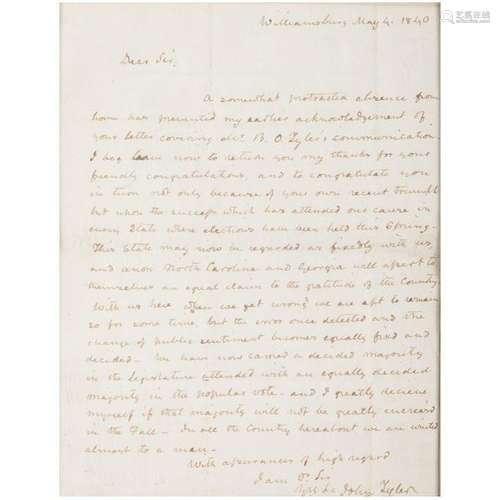 Williamsburg May 4. 1840
Dear Sir,
A somewhat protracted absence from
home has prevented my earlier acknowledgement of
your letter covering Mr. B. O. Tyler's communication.
I beg leave now to return you my thanks for your
friendly congratulations, and to congratulate you
in turn not only because of your own recent triumph
but upon the success which has attended our cause in
every State where elections have been held this Spring.
This State may now be regarded as fixedly with us,
and anon North Carolina and Georgia will assert to
themselves an equal claim to the gratitude of the Country
With us here when we get wrong we are apt to remain
so for some time, but the error once detected and the
change of public sentiment becomes equally fixed and
decided - We have now carried a decided majority
in the Legislature attended with an equally decided
majority in the popular vote - and I greatly deceive
myself if that majority will not be greatly increas'd
in the Fall - In all the Country hereabout we are united
almost to a man -
With assurances of high regard
I am Dr Sir
John Tyler